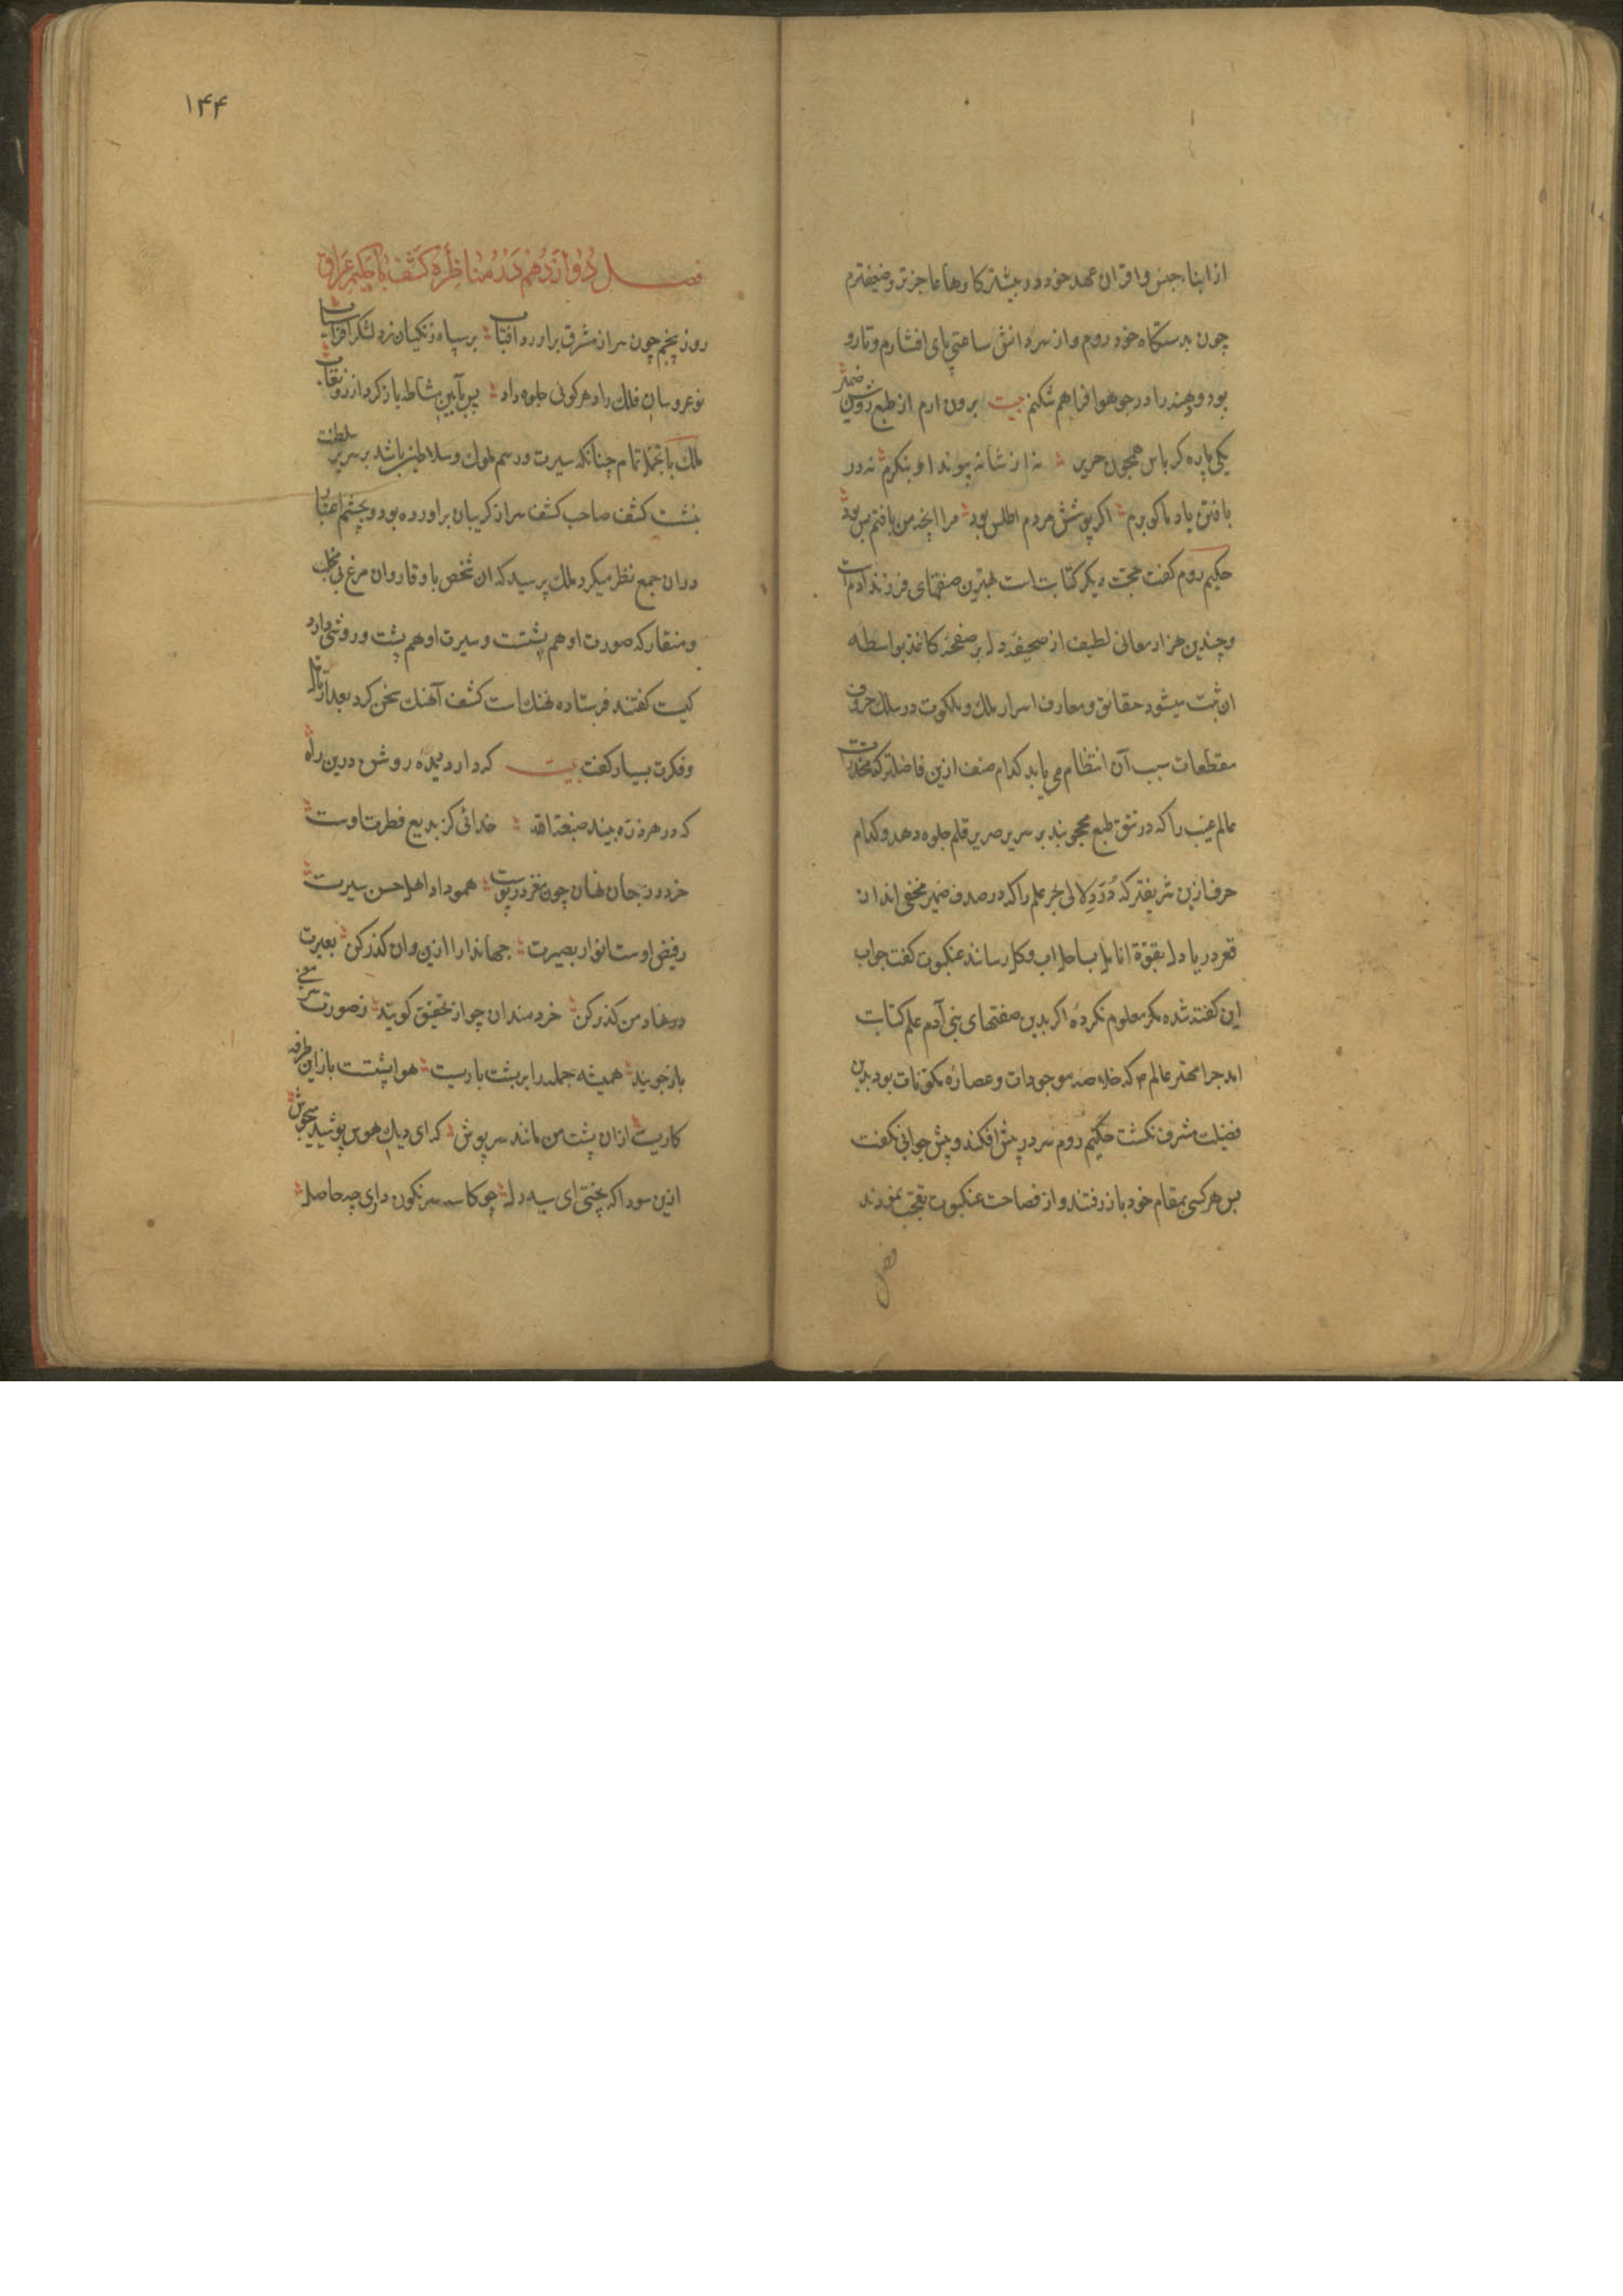 از ابناء جنس و اقران عهد خود در بیشتر کارها عاجزتر و ضعیفترم
چون بدستکاه خود روم و از سر دانش ساعتی پای افشارم و تار و
بود و چند را در جو هوا فراهم شکنم بیت برون ارم از طبع روشن ضمیر
یکی پاره کرباس همچون حریر نه از شانه پیوند او بنکرم نه در
بافتن باد ماکو برم اکر پوشش مردم اطلس بود مرا آنچه من بافتم بس بود
حکیم روم کفت حجت دیکر کتابت است بهترین صفتهای فرزند ادم است
و چندین هزار معانی لطیف از صحیفه دل بر صفحه کاغذ بواسطه
ان ثبت میشود حقائق و معارف اسرار ملک و ملکوت در سلک حروف
مقطعات سبب آن انتظام می یابد کدام صنف ازین فاضلتر که مخدرات
عالم غیب را که در تتق طبع محجوبند بر سریر صریر قلم جلوه دهد و کدام
حرف ازین شریفتر که درر و لالی بحر علم را که در صدف ضمیر مخفی اند از
قعر دریاء دل بقوة انامل بساحل اب و کل رساند عنکبوت کفت جواب
این کفته شده مکر معلوم نکردهٔ اکر بدین صفتهای بنی آدم علم کتابت
امد چرا مهتر عالم م که خلاصه موجودات و عصارهٔ مکونات بود بدین
فضیلت مشرف نکشت حکیم روم سر در پیش افکند و پیش جوابی نکفت
پس هر کسی بمقام خود باز رفتند و از فصاحت عنکبوت تعجب نمودند
فصل
۱۴۴
فصل دوازدهم در مناظره کشف با حکیم عراق
روز پنجم چون سر از مشرق براورد افتاب بر سپاه زنکیان زد لشکر افراسیاب
نوعروسان فلک را دهر کوئی جلوه داد پس بآیین مشاطه باز کرد از رو نقاب
ملک با تجمل تمام چنانکه سیرت و رسم ملوک و سلاطین باشد بر سریر سلطنت
بنشت کشف صاحب کشف سر از کریبان براورده بود و بچشم اعتبار
در ان جمع نظر میکرد ملک پرسید که ان شخص با وقار و ان مرغ بی مخلب
و منقار که صورت او هم پشتست و سیرت او هم پشت و روشی دارد
کیست کفتند فرستاده نهنک است کشف آهنک سخن کرد بعد از تامل
و فکرت بسیار کفت بیت که دارد دیدهٔ روشن درین راه
که در هر ذره بیند صنعة الله خدائی کز بدیع فطرت اوست
خرد در جان نهان چون مغز در پوست همو داد اهل حسن سیرت
ز فیض اوست انوار بصیرت جهاندارا ازین و ان کذر کن بعبرت
در نهاد من کذر کن خردمندان چو از تحقیق کویند ز صورت سر معنی
باز جویند همیشه جمله را بر پشت باریست هوا پشتست باز این طرفه
کاریست از ان پشت من مانند سرپوش که ای دیک هوس پوشیده میجوش
ازین سودا که پختی ای سیه دل چو کاسه سرنکون داری چه حاصل